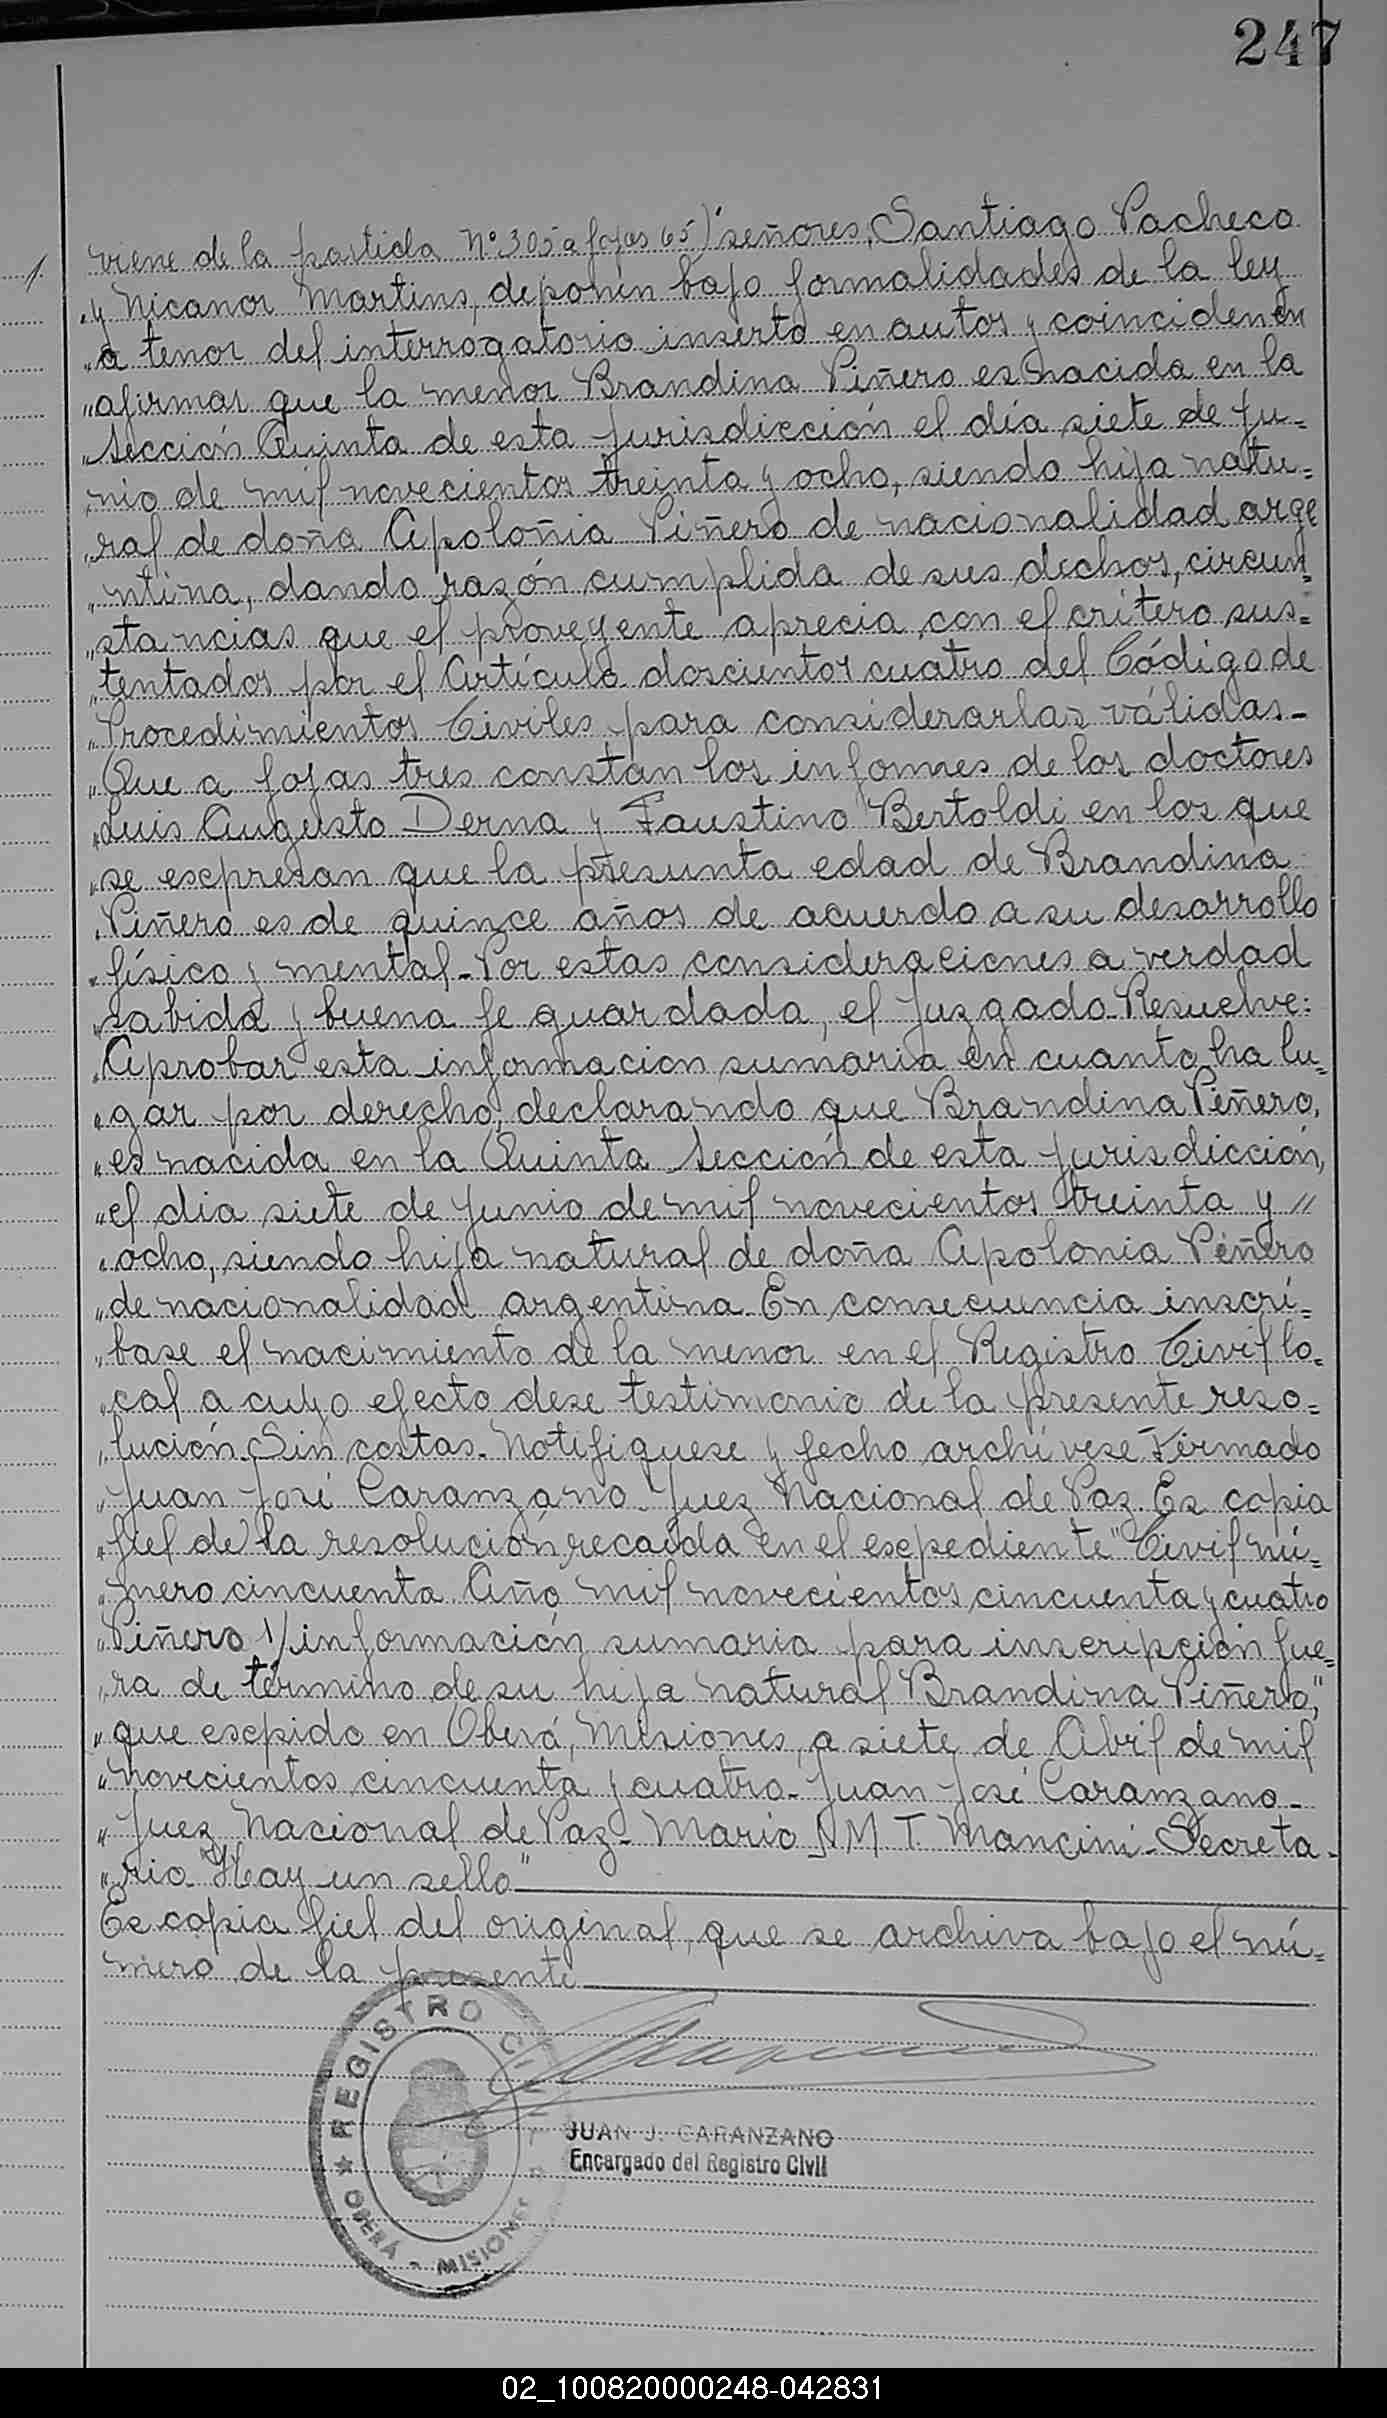 247
viene de la partida Nº 305 a fojas 65) "señores, Santiago Pacheco
"y Nicanor Martins, deponen bajo formalidades de la ley
"a tenor del interrogatorio inserto en autos y coinciden en
"afirmar que la menor Brandina Piñero es nacida en la
"Sección Quinta de esta jurisdicción el día siete de ju=
"nio de mil novecientos treinta y ocho, siendo hija natu=
"ral de doña Apoloñia Piñero de nacionalidad arge
"ntina, dando razón cumplida de sus dichos, circun=
"stancias que el proveyente aprecia con el critero sus=
"tentados por el Artículo doscientos cuatro del Código de
"Procedimientos Civiles para considerarlas válidas-
"Que a fojas tres constan los informes de los doctores
"Luis Augusto Derna y Faustino Bertoldi en los que
"se escpresan que la presunta edad de Brandina
"Piñero es de quince años de acuerdo a su desarrollo
"físico y mental-Por estas consideraciones a verdad
"sabida y buena fe guardada, el Juzgado-Resuelve:
"Aprobar esta informacion sumaria en cuanto ha lu=
"gar por derecho, declarando que Brandina Piñero,
"es nacida en la Quinta Sección de esta jurisdicción,
"el dia siete de Junio de mil novecientos treinta y //
"ocho, siendo hija natural de doña Apolonia Piñero
"de nacionalidad argentina-En consecuencia inscrí=
"base el nacimiento de la menor en el Registro Civil lo=
"cal a cuyo efecto dese testimonio de la presente reso=
"lución-Sin costas-Notifiquese y fecho archívese-Firmado
"Juan José Caranzano-Juez Nacional de Paz-Es copia
"fiel de la resolución recaída en el escpediente "Civil nú=
"mero cincuenta-Año mil novecientos cincuenta y cuatro
"Piñero s/información sumaria para inscripción fue=
"ra de término de su hija natural Brandina Piñero,"
"que escpido en Oberá, Misiones, a siete de Abril de mil
"novecientos cincuenta y cuatro-Juan José Caranzano-
"Juez Nacional de Paz-Mario M T. Mancini-Secreta-
"rio "Hay un sello"
Es copia fiel del original, que se archiva bajo el nú=
mero de la presente
REGISTRO CIVIL
OBERÁ - MISIONES
JUAN J. CARANZANO
Encargado del Registro Civil
02_100820000248-042831